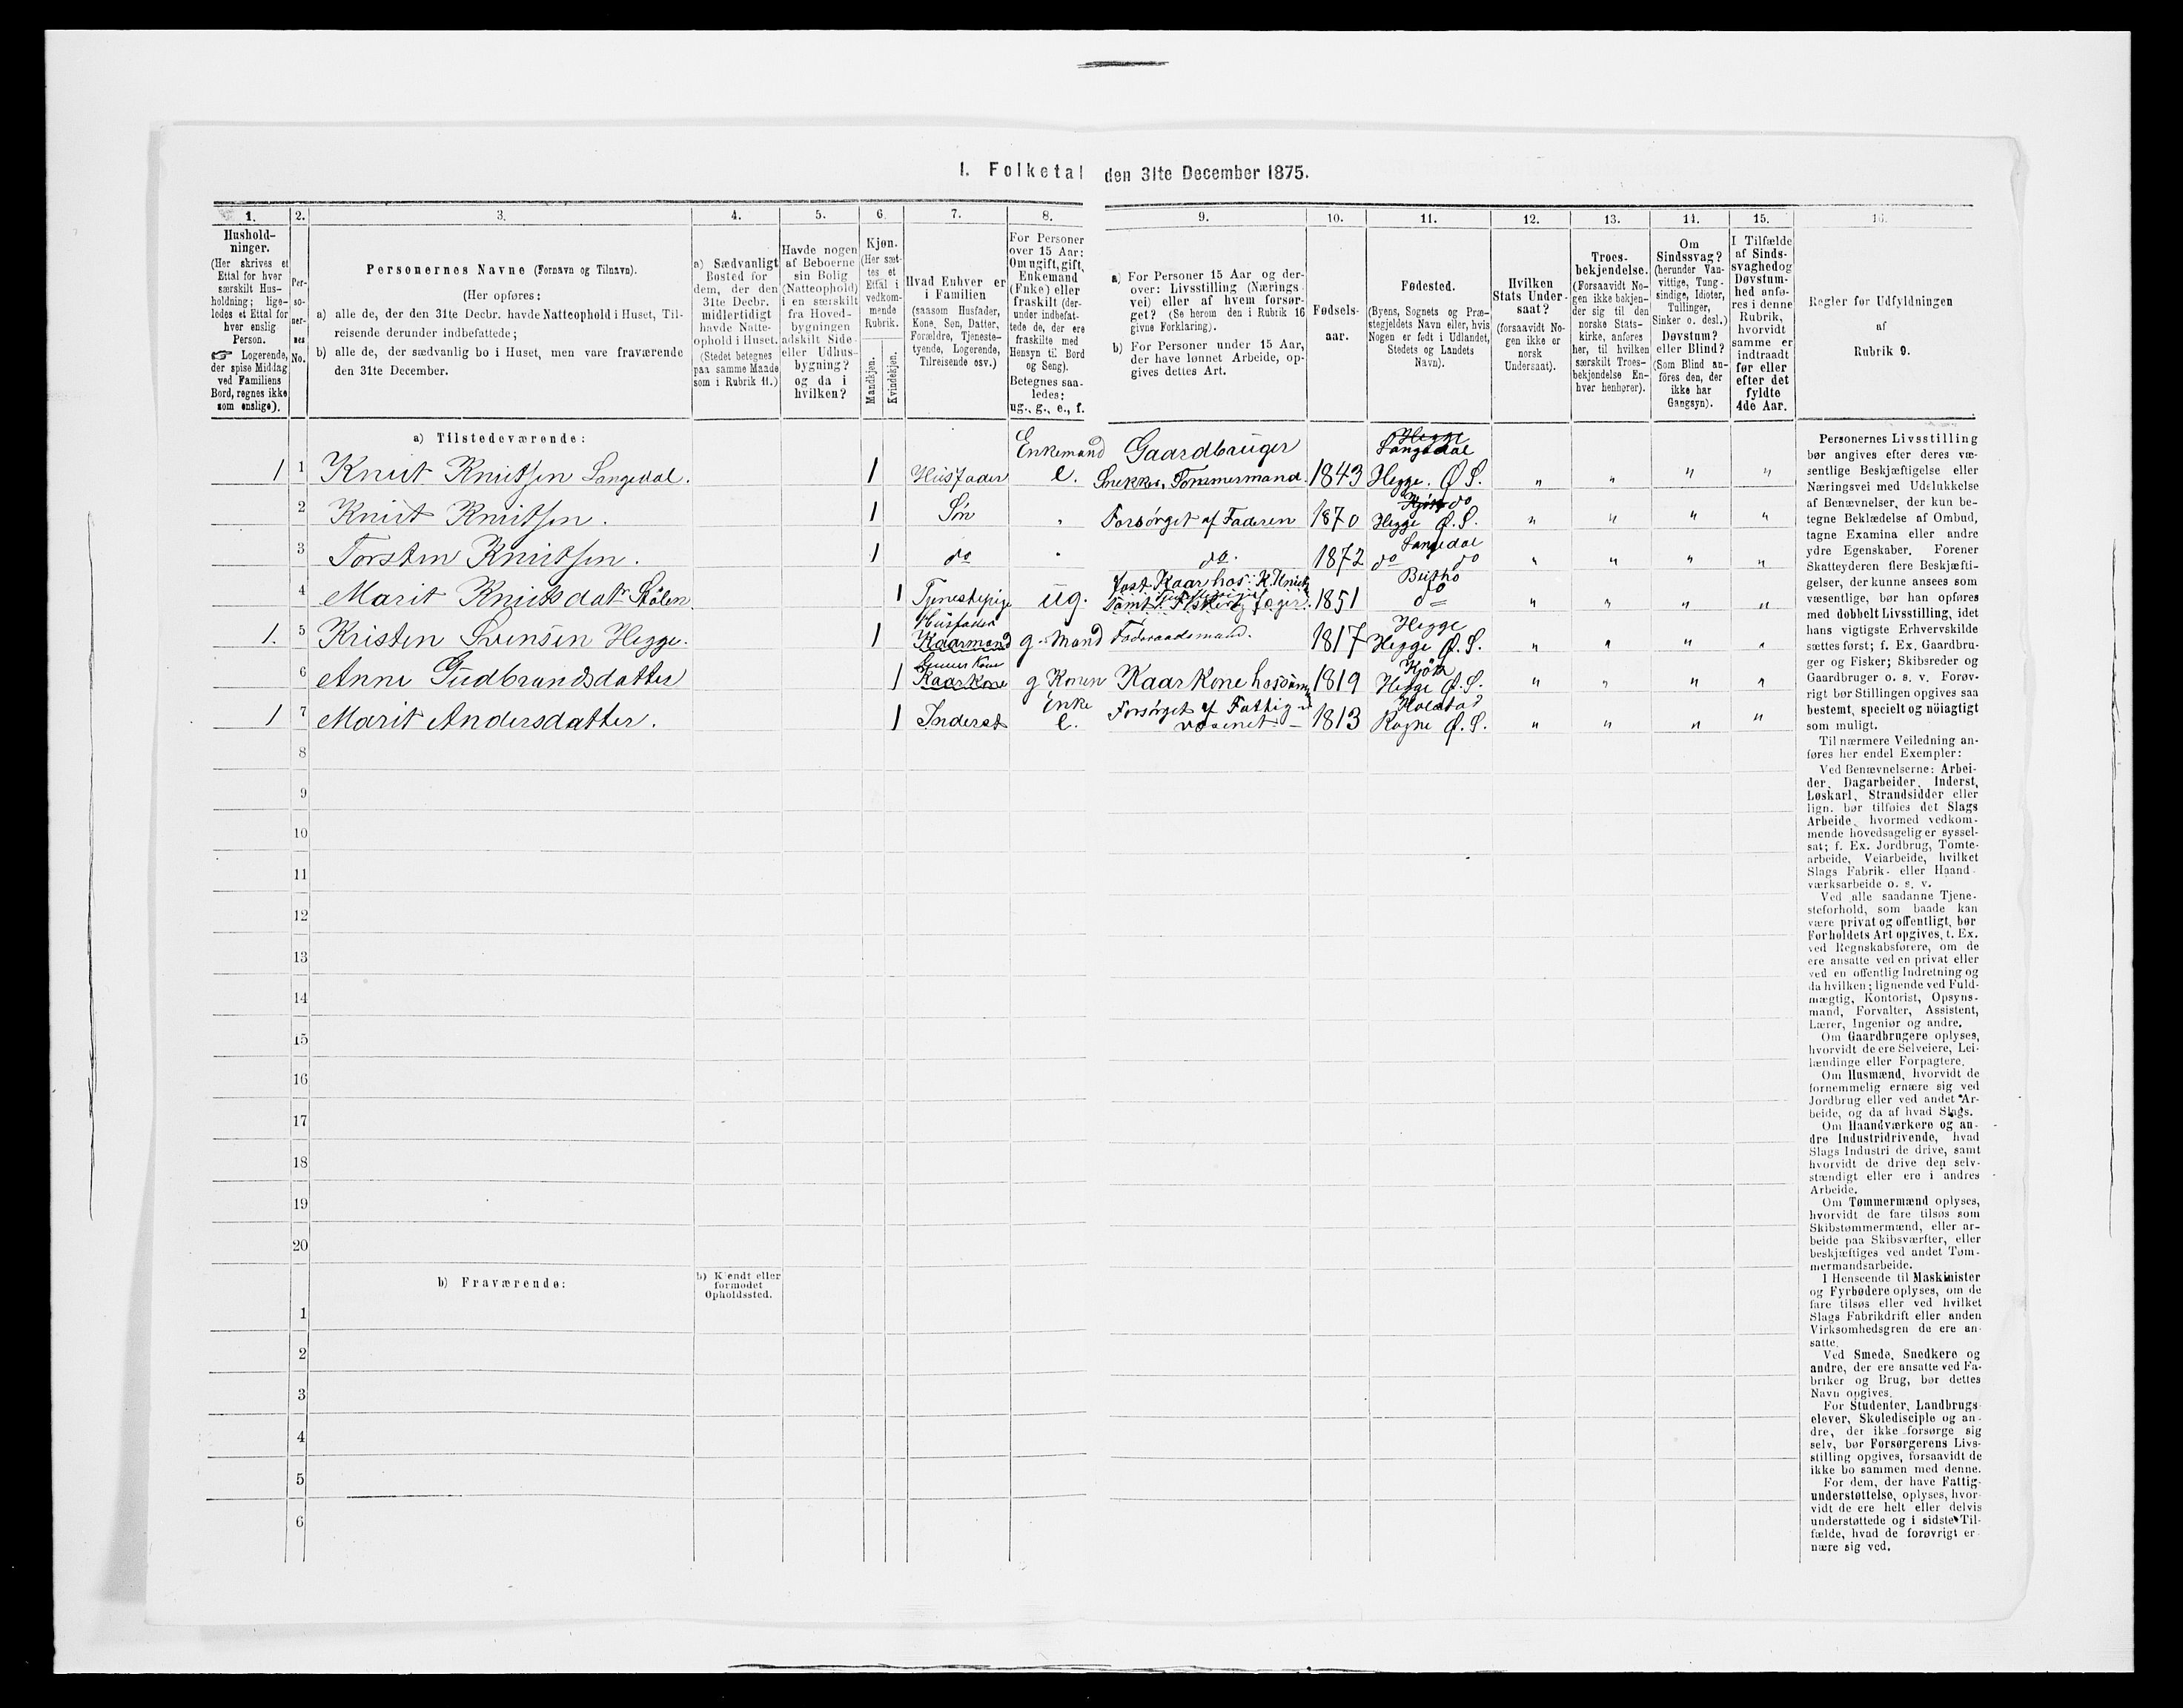 I. Folketal den 31te December 1875.
1. 2. 3. 4. 5. 6. 7. 8. 9. 10. 11. 12. 13. 14. 15. 16.
Hushold-
ninger.
(Her skrives et
Ettal for hver
særskilt Hus-
holdning; lige-
ledes et Ettal for
hver enslig
Person.
☞ Logerende,
der spise Middag
ved Familiens
Bord, regnes ikke
som enslige).
Per-
so-
ner-
nes
No.
Personernes Navne (Fornavn og Tilnavn).
(Her opføres:
a) alle de, der den 31te Decbr. havde Natteophold i Huset, Til-
reisende derunder indbefattede;
b) alle de, der sædvanlig bo i Huset, men vare fraværende
den 31te December.
a) Sædvanligt
Bosted for
dem, der den
31te Decbr.
midlertidigt
havde Natte-
ophold i Huset.
(Stedet betegnes
paa samme Maade
som i Rubrik 11.)
Havde nogen
af Beboerne
sin Bolig
(Natteophold)
i en særskilt
fra Hoved-
bygningen
adskilt Side-
eller Udhus-
bygning?
og da i
hvilken?
Kjøn.
(Her sæt-
tes et
Ettal i
vedkom-
mende
Rubrik.
Mandkjøn.
Kvindekjøn.
Hvad Enhver er
i Familien
(saasom Husfader,
Kone, Søn, Datter,
Forældre, Tjeneste-
tyende, Logerende,
Tilreisende osv.)
For Personer
over 15 Aar:
Om ugift, gift,
Enkemand
(Enke) eller
fraskilt (der-
under indbefat-
tede de, der ere
fraskilte med
Hensyn til Bord
og Seng).
Betegnes saa-
ledes:
ug., g., e., f.
a) For Personer 15 Aar og der-
over: Livsstilling (Nærings-
vei) eller af hvem forsør-
get? (Se herom den i Rubrik 16
givne Forklaring).
b) For Personer under 15 Aar,
der have lønnet Arbeide, op-
gives dettes Art.
Fødsels-
aar.
Fødested.
(Byens, Sognets og Præ-
stegjeldets Navn eller, hvis
Nogen er født i Udlandet,
Stedets og Landets
Navn).
Hvilken
Stats Under-
saat?
(forsaavidt No-
gen ikke er
norsk
Undersaat).
Troes-
bekjendelse.
(Forsaavidt No-
gen ikke bekjen-
der sig til den
norske Stats-
kirke, anføres
her, til hvilken
særskilt Troes-
bekjendelse En-
hver henhører).
Om
Sindssvag?
(herunder Van-
vittige, Tung-
sindige, Idioter,
Tullinger,
Sinker o. desl.)
Døvstum?
eller Blind?
(Som Blind an-
føres den, der
ikke har
Gangsyn).
I Tilfælde
af Sinds-
svaghed og
Døvstum-
hed anfø-
res i denne
Rubrik,
hvorvidt
samme er
indtraadt
før eller
efter det
fyldte
4de Aar.
Regler for Udfyldningen
af
Rubrik 9.
a) Tilstedeværende:
Enkemand Gaardbruger Hegge Langedal
1 1 Knut Knutsen Langedal. 1 Husfader e. Snekker, Tømmermand. 1843 Hegge. Ø S. " " " "
2 Knut Knutsen. 1 Søn " Forsørget af Faderen 1870 Hegge Ø. S. do " " " "
3 Torsten Knutsen. 1 do " do. 1872 do Langedal do " " " "
4 Marit Knutsdatr Stølen. 1 Tjenestepige ug. 1851 Butho do " " " "
1. 5 Kristen Svensen Hegge. 1 Husfader Kaarmand g. Mand Føderaadsmand. 1817 Hegge Hegge Ø. S. " " " "
6 Anne Gudbrandsdatter 1 Kaarkone g Konen Kaarkone hos 1819 Hegge Ø. S. " " " "
1 7 Marit Andersdatter. 1 Inderst Enke e. Forsørget af Fattigvæsenet 1813 Rogne Ø. S. " " " "
8
9
10
11
12
13
14
15
16
17
18
19
20
b) Fraværende:
b) Kjendt eller
formodet
Opholdssted.
1
2
3
4
5
6
Personernes Livsstilling
bør angives efter deres væ-
sentlige Beskjæftigelse eller
Næringsvei med Udelukkelse
af Benævnelser, der kun be-
tegne Beklædelse af Ombud,
tagne Examina eller andre
ydre Egenskaber. Forener
Skatteyderen flere Beskjæfti-
gelser, der kunne ansees som
væsentlige, bør han opføres
med dobbelt Livsstilling, idet
hans vigtigste Erhvervskilde
sættes først; f. Ex. Gaardbru-
ger og Fisker; Skibsreder og
Gaardbruger o. s. v. Forøv-
rigt bør Stillingen opgives saa
bestemt, specielt og nöiagtigt
som muligt.
Til nærmere Veiledning an-
føres her endel Exempler:
Ved Benævnelserne: Arbei-
der, Dagarbeider, Inderst,
Løskarl, Strandsidder eller
lign. bør tilføies det Slags
Arbeide, hvormed vedkom-
mende hovedsagelig er syssel-
sat; f. Ex. Jordbrug, Tomte-
arbeide, Veiarbeide, hvilket
Slags Fabrik- eller Haand-
værksarbeide o. s. v.
Ved alle saadanne Tjene-
steforhold, som baade kan
være privat og offentligt, bør
Forholdets Art opgives, t. Ex.
ved Regnskabsførere, om de
ere ansatte ved en privat eller
ved en offentlig Indretning og
da hvilken; lignende ved Fuld-
mægtig, Kontorist, Opsyns-
mand, Forvalter, Assistent,
Lærer, Ingeniør og andre.
Om Gaardbrugere oplyses,
hvorvidt de ere Selveiere, Lei-
lændinge eller Forpagtere.
Om Husmænd, hvorvidt de
fornemmelig ernære sig ved
Jordbrug eller ved andet Ar-
beide, og da af hvad Slags.
Om Haandværkere og an-
dre Industridrivende, hvad
Slags Industri de drive, samt
hvorvidt de drive den selv-
stændigt eller ere i andres
Arbeide.
Om Tømmermænd oplyses,
hvorvidt de fare tilsøs som
Skibstømmermænd, eller ar-
beide paa Skibsværfter, eller
beskjæftiges ved andet Tøm-
mermandsarbeide.
I Henseende til Maskinister
og Fyrbødere oplyses, om de
fare tilsøs eller ved hvilket
Slags Fabrikdrift eller anden
Virksomhedsgren de ere an-
satte.
Ved Smede, Snedkere og
andre, der ere ansatte ved Fa-
briker og Brug, bør dettes
Navn opgives.
For Studenter, Landbrugs-
elever, Skoledisciple og an-
dre, der ikke forsørge sig
selv, bør Forsørgerens Livs-
stilling opgives, forsaavidt de
ikke bo sammen med denne.
For dem, der have Fattig-
understøttelse, oplyses, hvor-
vidt de ere helt eller delvis
understøttede og i sidste Til-
fælde, hvad de forøvrigt er-
nære sig ved.